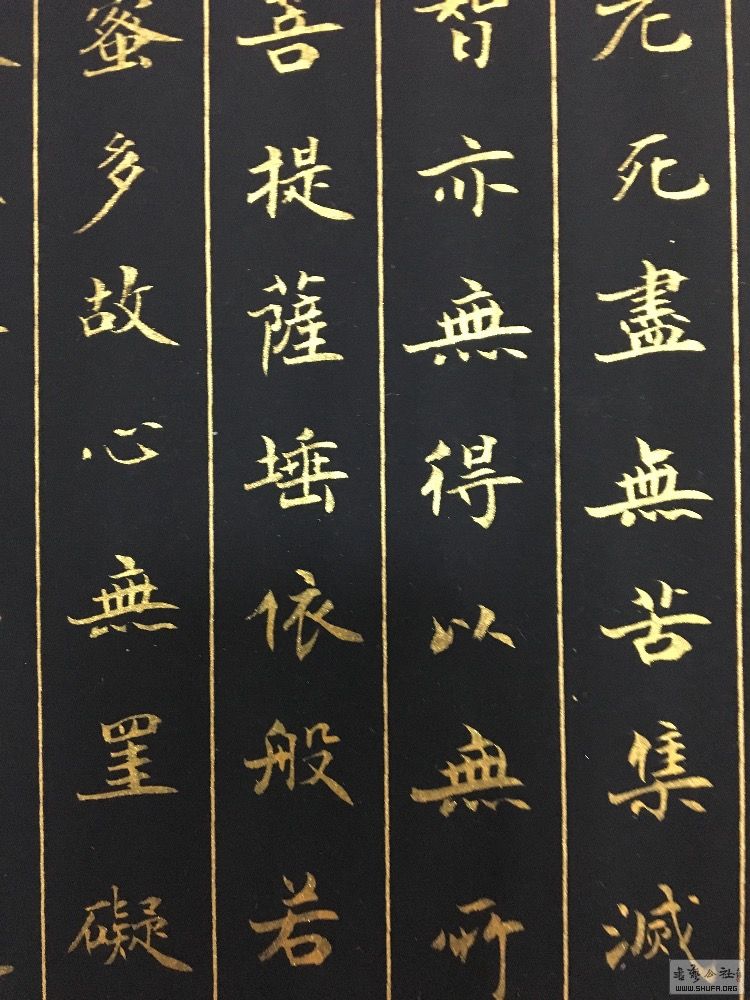 老死盡無苦集滅
智亦無得以無所
菩提薩埵依般若
蜜多故心無罣礙
WWW.SHUFA.ORG